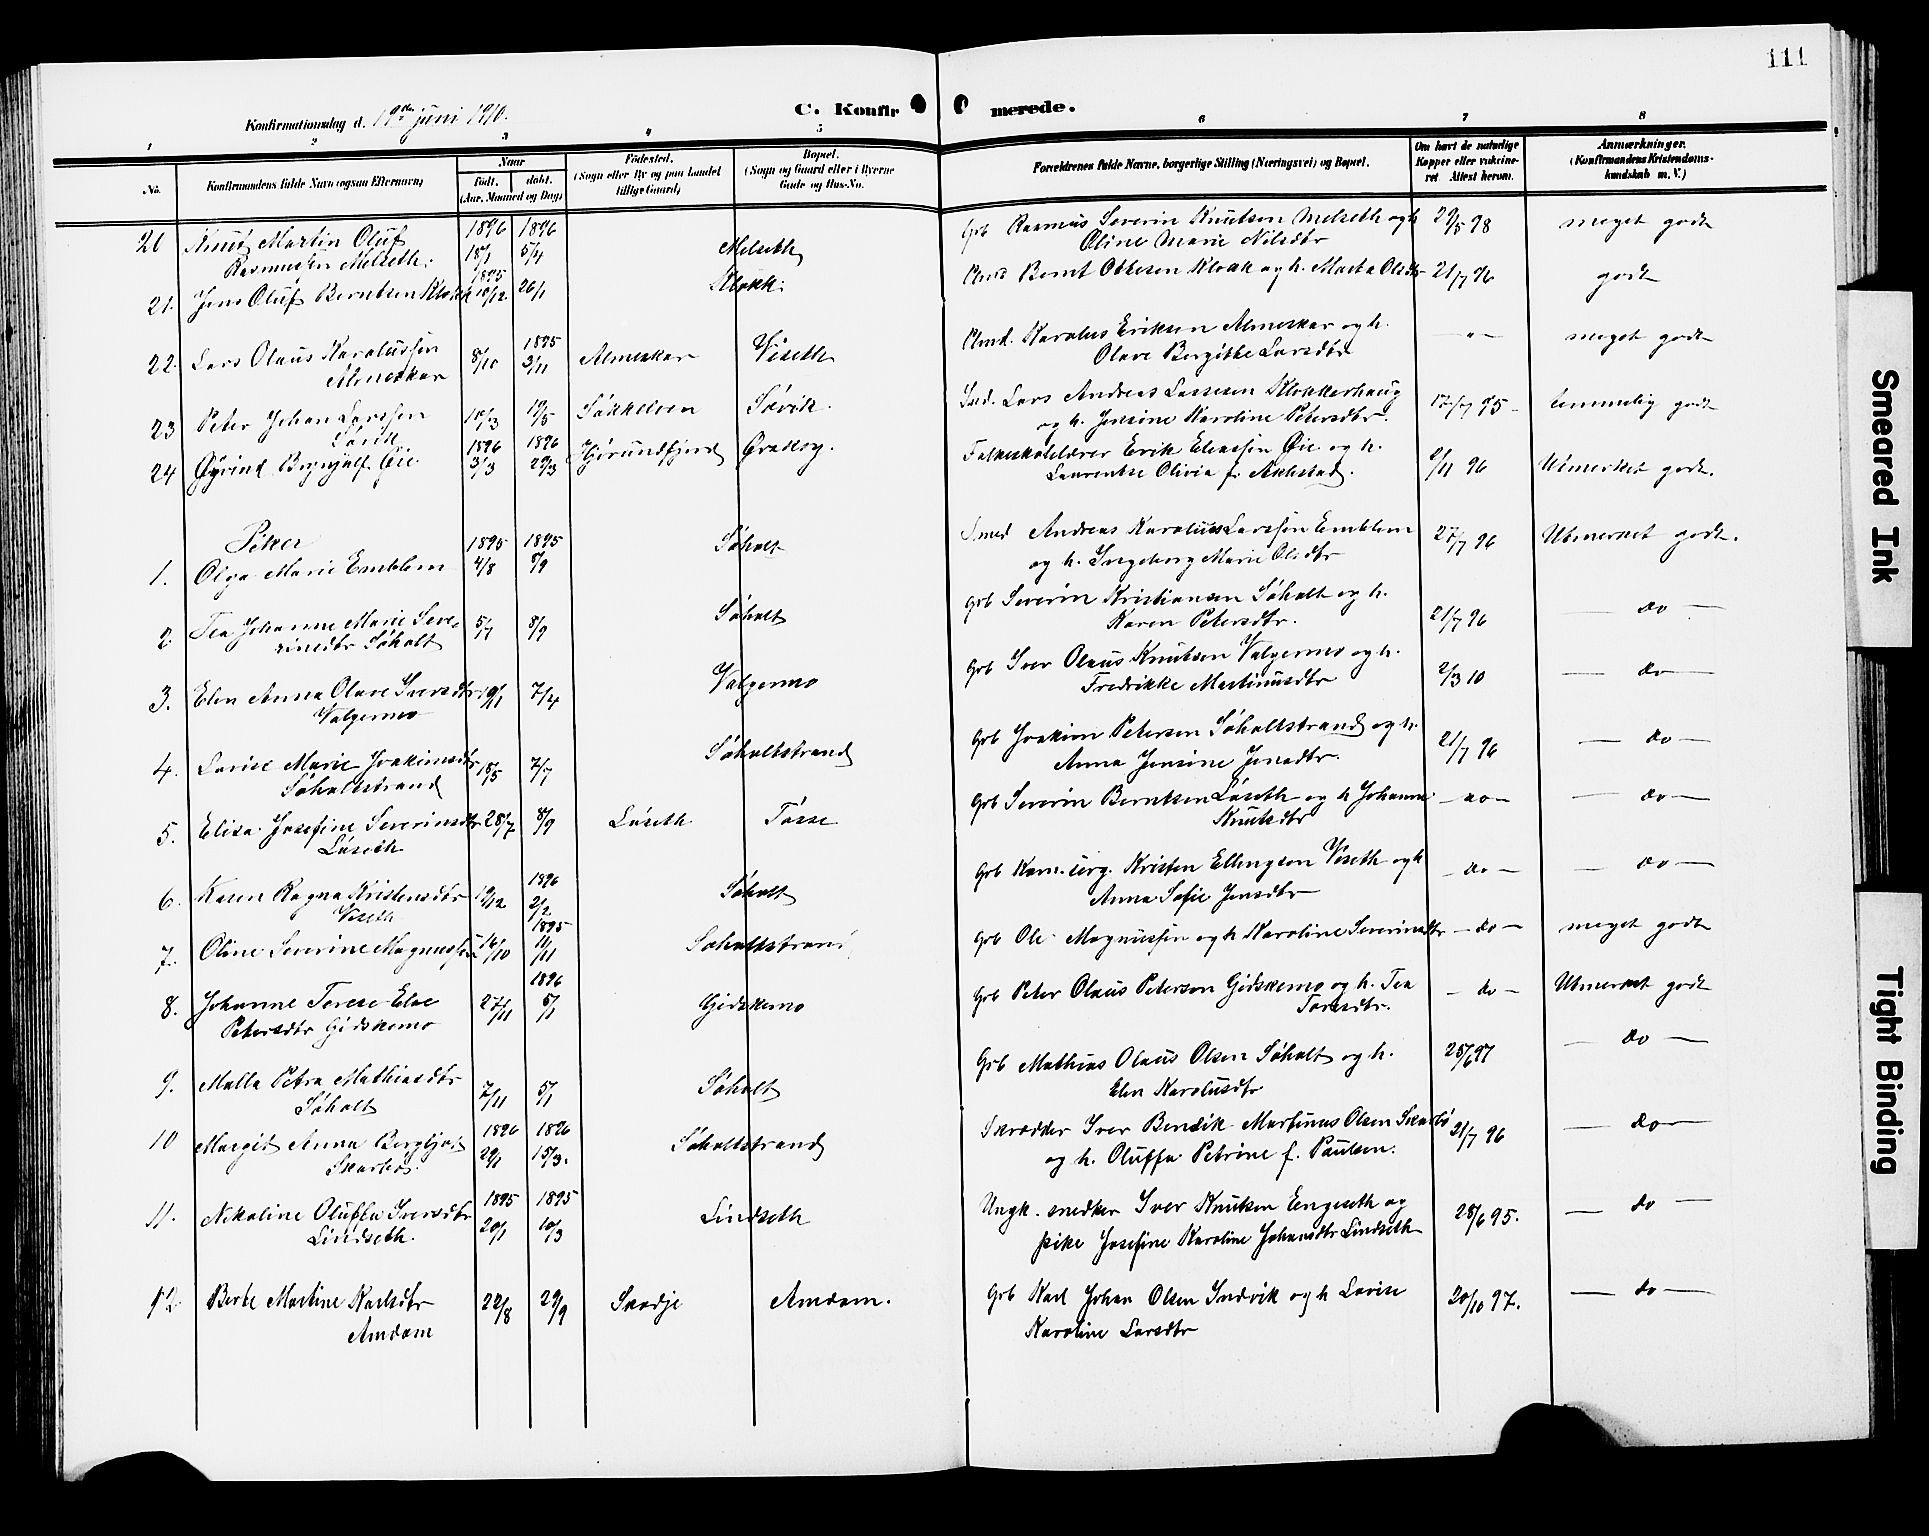 111
Konfirmationsdag d. 19de juni 1910.
C. Konfir merede.
1 2 3 4 5 6 7 8
No.
Konfirmandens fulde Navn (ogsaa Efternavn)
Naar
født. døbt.
(Aar, Maaned og Dag)
Fødested.
(Sogn eller By og paa Landet
tillige Gaard)
Bopæl.
(Sogn og Gaard eller i Byerne
Gade og Hus-No.
Forældrenes fulde Navne, borgerlige Stilling (Næringsvei) og Bopæl.
Om havt de naturlige
Kopper eller vakcine-
ret Attest herom.
Anmærkninger.
(Konfirmandens Kristendoms-
kundskab m. V.)
20 Knut Martin Oluf 1896 1896 Melseth Grb Rasmus Severin Knutsen Melseth og h 29/5 98 meget godt
Rasmussen Melseth. 18/1 5/4 Oline Marie Nilsdtr
21. Jens Oluf Berntsen Klokk 1895 10/12 26/1 Klokk. Bernt Ottesen Klokk og h. Marta Olsdtr 21/7 96 godt
22. Lars Olaus Karolussen 8/10 1895 3/11 Almeskar Viseth Karolus Eriksen Almeskar og h. — " — meget godt
Almeskar Olave Bergitte Larsdtr
23 Peter Johan Larssen 10/3 19/5 Søkkelven Søvik. Ind. Lars Andreas Lassesen Klokkerhaug 17/7 95 temmelig godt
Søvik og h. Jensine Karoline Petersdtr.
24 Øyvind Brynjulf Øie. 1896 3/3 1896 29/3 Hjørundfjord Ørskog. Folkeskolelærer Erik Eliassen Øie og h. 9/11 96 Utmerket godt.
Laurentse Olivia f. Aklestad.
Piker
1. Olga Marie Emblem 1895 4/8 1895 8/9 Søholt Smed Andreas Karolus Larssen Emblem 27/7 96 Utmerket godt.
og h. Ingeborg Marie Olsdtr
2. Tea Johanne Marie Seve- 5/7 8/9 Søholt Grb Severin Kristiansen Søholt og h. 21/7 96 — do —
rinsdtr Søholt Karen Petersdtr.
3. Elen Anna Olave Iversdtr 19/1 7/4 Valgermo Grb Iver Olaus Knutsen Valgermo og h. 2/3 10 — do —
Valgermo Fredrikke Martinusdtr
4. Lovise Marie Joakimsdtr 18/5 7/7 Søholtstrand Grb Joakim Petersen Søholtstrand og h. 21/7 96 — do —
Søholtstrand Anna Jensine Jensdtr.
5. Elisa Josefine Severinsdtr 28/7 8/9 Løseth Tøsse Grb Severin Berntsen Løseth og h Johanne — do — — do —
Løseth Knutsdtr
6. Karen Ragna Kristensdtr 19/12 1896 2/2 Søholt Grb Kom. sirg. Kristen Ellingsen Viseth og h — do — — do —
Viseth Anna Sofie Jensdtr
7. Oline Severine Magnussen 16/10 1895 11/11 Søholtstrand Grb Ole Magnussen og h Karoline Severinsdtr — do — meget godt
8. Johanne Terese Else 27/11 1896 5/1 Gidskemo Grb Peter Olaus Petersen Gidskemo og h. Tea — do — Utmerket godt
Petersdtr Gidskemo Toresdtr.
9. Malla Petra Mathiasdtr 7/11 5/1 Søholt Grb Mathias Olaus Olsen Søholt og h. 25/6 97 — do —
Søholt Elen Karolusdtr
10 Margit Anna Bergljot 1896 29/1 1896 15/3. Søholtstrand Skrædder Iver Bendik Martinus Olsen Skarbø 21/7 96 — do —
Skarbø. og h. Oluffa Petrine f. Paulsen.
11. Nikoline Oluffa Iversdtr 1895 20/1 1895 10/3 Lindseth Ungk. snedker Iver Knutsen Engeseth og 28/6 95. — do —
Lindseth. pike Josefine Karoline Johansdtr Lindseth
12 Berte Martine Karlsdtr 22/8 29/9 Skodje Amdam. Grb Karl Johan Olsen Indvik og h Lovise 20/10 97. — do —
Amdam Karoline Larsdtr
Smeared Ink
Tight Binding